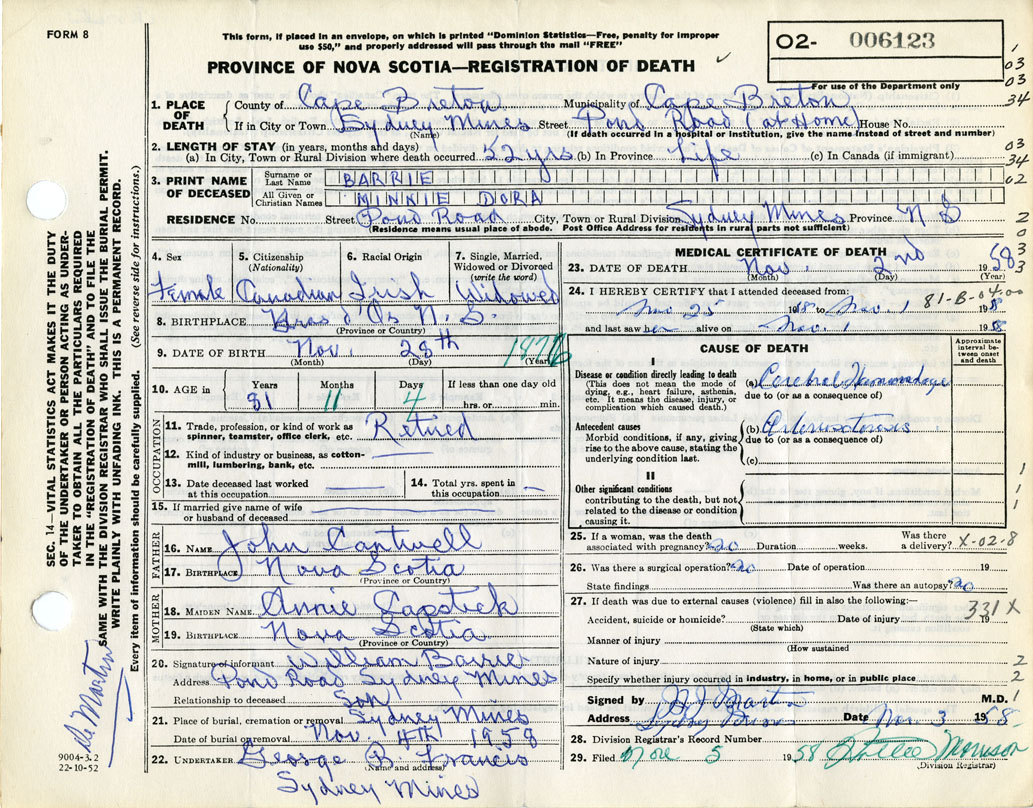 FORM 8
This form, if placed in an envelope, on which is printed "Dominion Statistics—Free, penalty for improper
use $50," and properly addressed will pass through the mail "FREE"
PROVINCE OF NOVA SCOTIA—REGISTRATION OF DEATH
02- 006123
For use of the Department only
1. PLACE OF DEATH County of Cape Breton Municipality of Cape Breton
If in City or Town Sydney Mines Street Pond Road (at Home) House No.
(Name) (If death occurred in a hospital or institution, give the name instead of street and number)
2. LENGTH OF STAY (in years, months and days)
(a) In City, Town or Rural Division where death occurred 52 yrs (b) In Province Life (c) In Canada (if immigrant)
3. PRINT NAME OF DECEASED Surname or Last Name BARRIE
All Given or Christian Names MINNIE DORA
RESIDENCE No. Street Pond Road City, Town or Rural Division Sydney Mines Province N S
(Residence means usual place of abode. Post Office Address for residents in rural parts not sufficient)
4. Sex Female
5. Citizenship (Nationality) Canadian
6. Racial Origin Irish
7. Single, Married, Widowed or Divorced (write the word) Widowed
8. BIRTHPLACE Bras d'Or N. S.
(Province or Country)
9. DATE OF BIRTH Nov. 28th 1876
(Month) (Day) (Year)
10. AGE in Years 81 Months 11 Days 4 If less than one day old hrs. or min.
OCCUPATION
11. Trade, profession, or kind of work as spinner, teamster, office clerk, etc. Retired
12. Kind of industry or business, as cotton-mill, lumbering, bank, etc.
13. Date deceased last worked at this occupation
14. Total yrs. spent in this occupation
15. If married give name of wife or husband of deceased
FATHER
16. NAME John Cantwell
17. BIRTHPLACE Nova Scotia
(Province or Country)
MOTHER
18. MAIDEN NAME Annie Capstick
19. BIRTHPLACE Nova Scotia
(Province or Country)
20. Signature of informant William Barrie
Address Pond Road Sydney Mines
Relationship to deceased Son
21. Place of burial, cremation or removal Sydney Mines
Date of burial or removal Nov. 4th 1958
22. UNDERTAKER George B. Francis
(Name and address)
Sydney Mines
MEDICAL CERTIFICATE OF DEATH
23. DATE OF DEATH Nov. 2nd 1958
(Month) (Day) (Year)
24. I HEREBY CERTIFY that I attended deceased from:
25 to Nov. 1 1958
81-B-04.00
and last saw her alive on Nov. 1 1958
CAUSE OF DEATH
Approximate interval between onset and death
I
Disease or condition directly leading to death
(This does not mean the mode of dying, e.g., heart failure, asthenia, etc. It means the disease, injury, or complication which caused death.)
(a) Cerebral Hemorrhage
due to (or as a consequence of)
Antecedent causes
Morbid conditions, if any, giving rise to the above cause, stating the underlying condition last.
(b)
due to (or as a consequence of)
(c)
II
Other significant conditions
contributing to the death, but not related to the disease or condition causing it.
25. If a woman, was the death associated with pregnancy? no Duration weeks. Was there a delivery? X-02-8
26. Was there a surgical operation? no Date of operation 19
State findings Was there an autopsy? no
27. If death was due to external causes (violence) fill in also the following:—
331 X
Accident, suicide or homicide? Date of injury 19
(State which)
Manner of injury
(How sustained
Nature of injury
Specify whether injury occurred in industry, in home, or in public place
Signed by Martin M.D.
Address Date Nov 3 1958.
28. Division Registrar's Record Number
29. Filed Nov 5 1958 Morrison
(Division Registrar)
SEC. 14—VITAL STATISTICS ACT MAKES IT THE DUTY
OF THE UNDERTAKER OR PERSON ACTING AS UNDER-
TAKER TO OBTAIN ALL THE PARTICULARS REQUIRED
IN THE "REGISTRATION OF DEATH" AND TO FILE THE
SAME WITH THE DIVISION REGISTRAR WHO SHALL ISSUE THE BURIAL PERMIT.
WRITE PLAINLY WITH UNFADING INK. THIS IS A PERMANENT RECORD.
Every item of information should be carefully supplied. (See reverse side for instructions.)
Dr Martin
9004-3.2
22-10-52
1
03
03
34
03
34
02
2
0
3
3
1
1
1
2
2
1